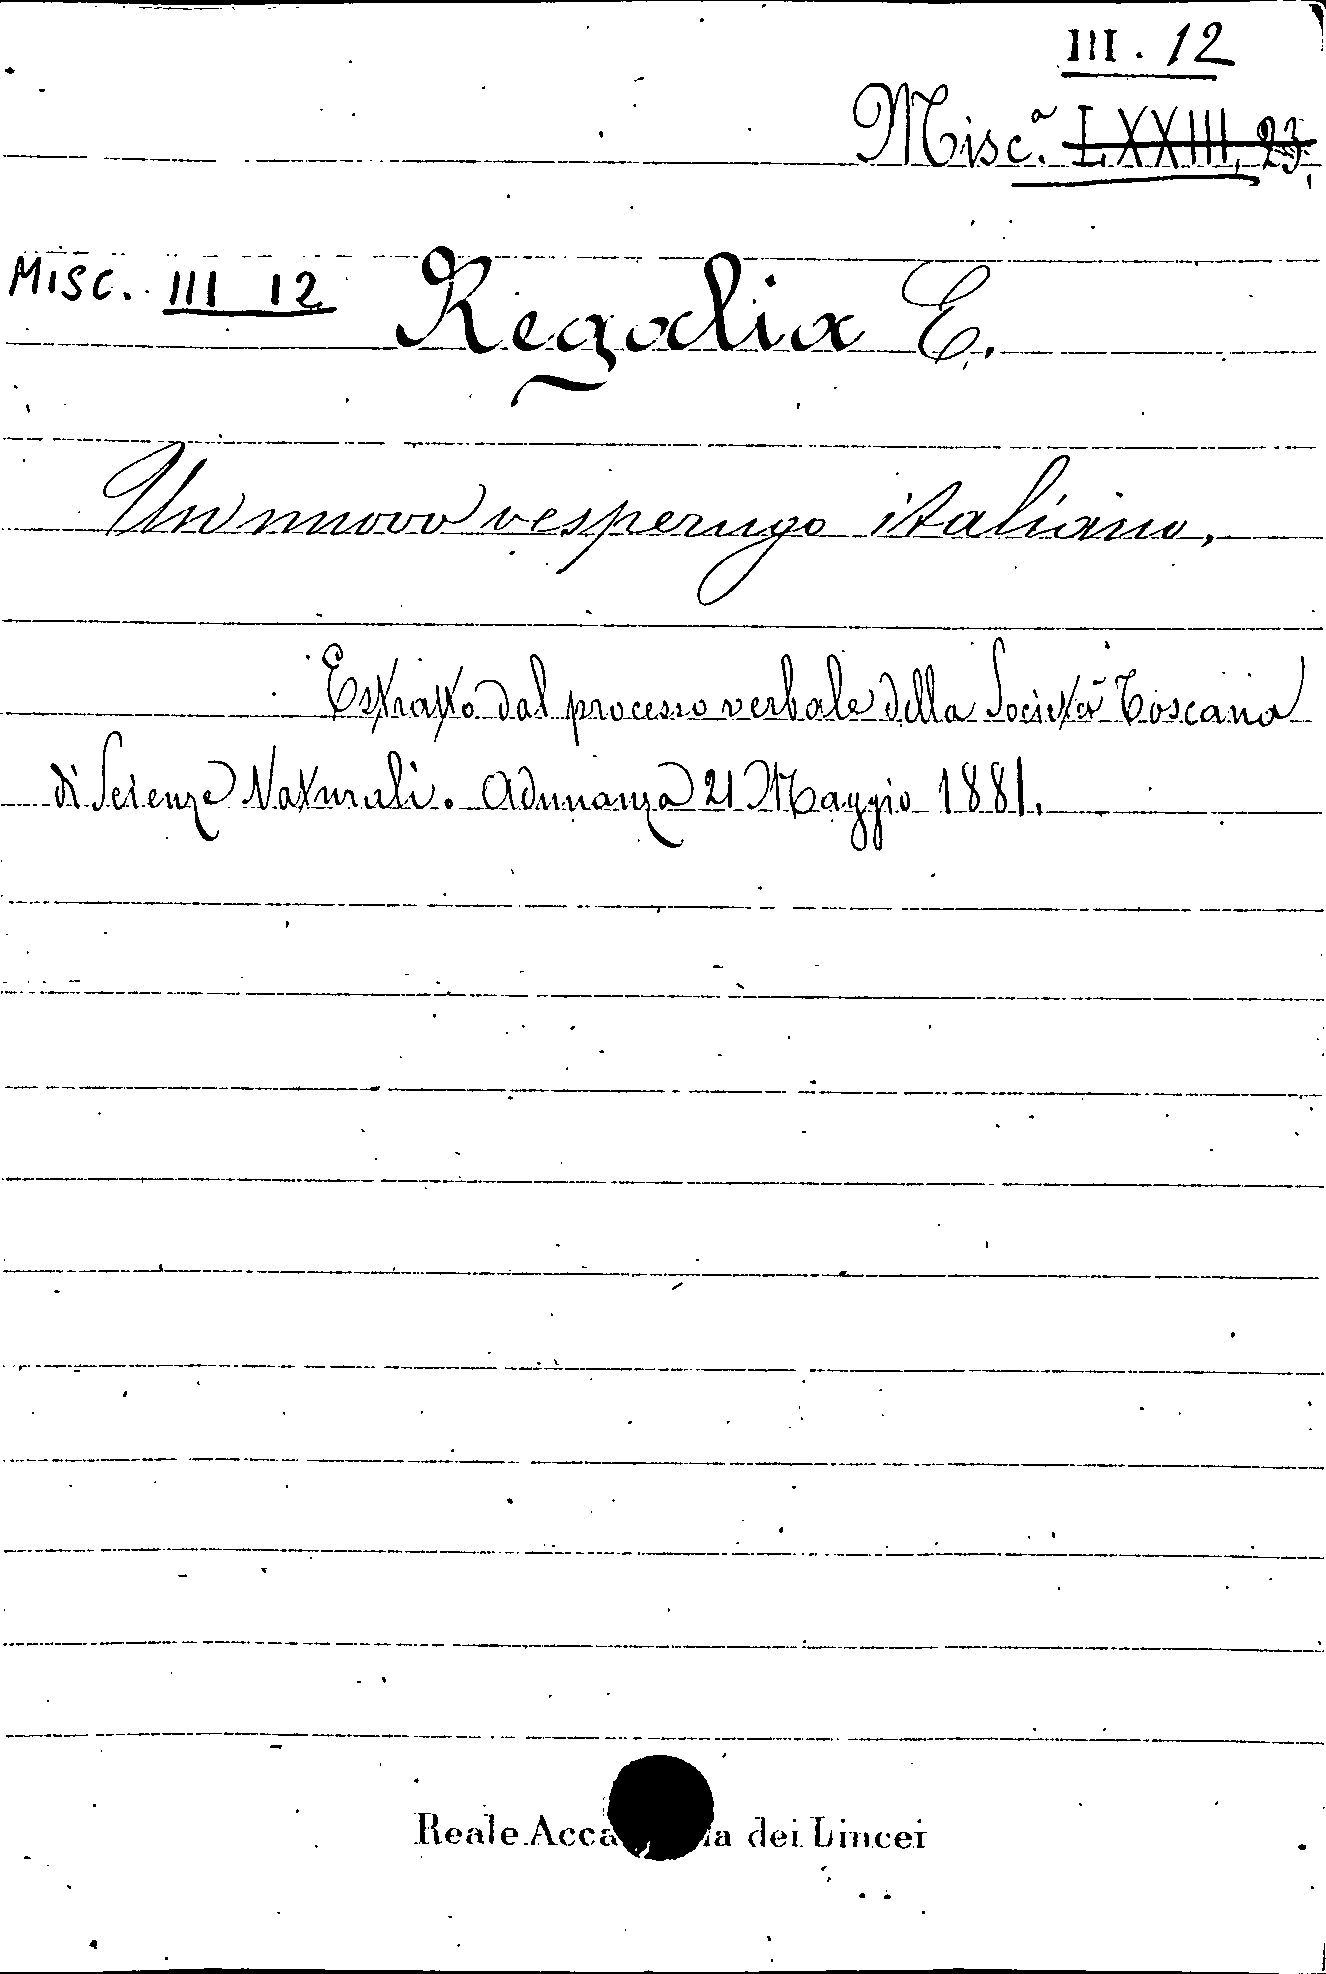 III. 12
Misc.ª LXXIII, 23.
MISC. III 12 Regalia E.
Un nuovo vesperugo italiano.
Estratto dal processo verbale della Società Toscana
di Scienze Naturali. Adunanza 21 Maggio 1881.
Reale Acca ia dei Lincei